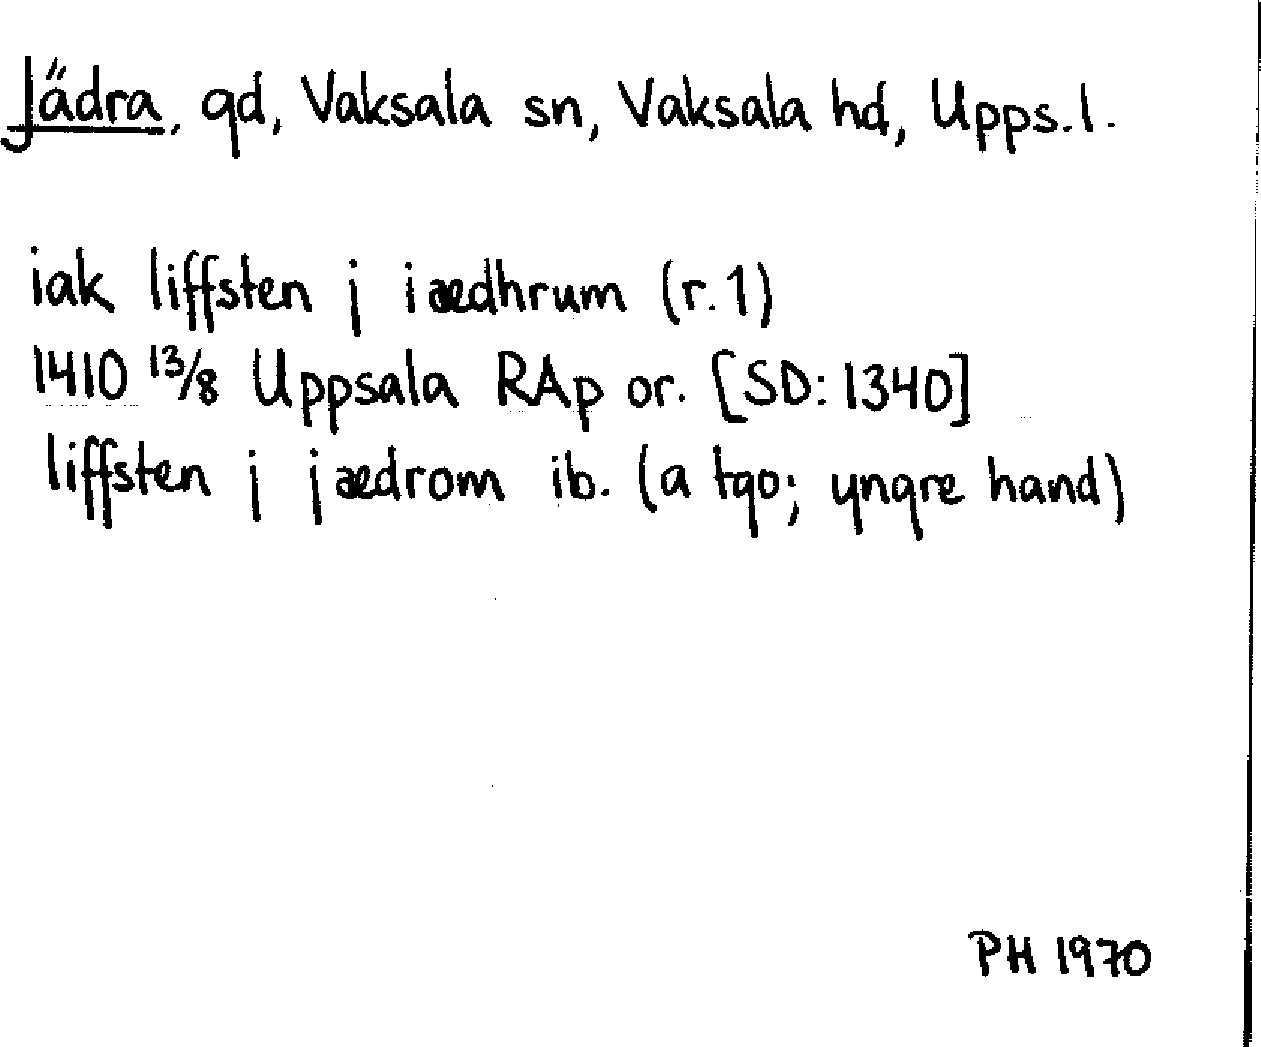 Jädra, gd, Vaksala sn, Vaksala hd, Upps. l.
iak liffsten j iædhrum (r. 1)
1410 13/8 Uppsala RAp or. [SD: 1340]
liffsten j jædrom ib. (a tgo; yngre hand)
PH 1970